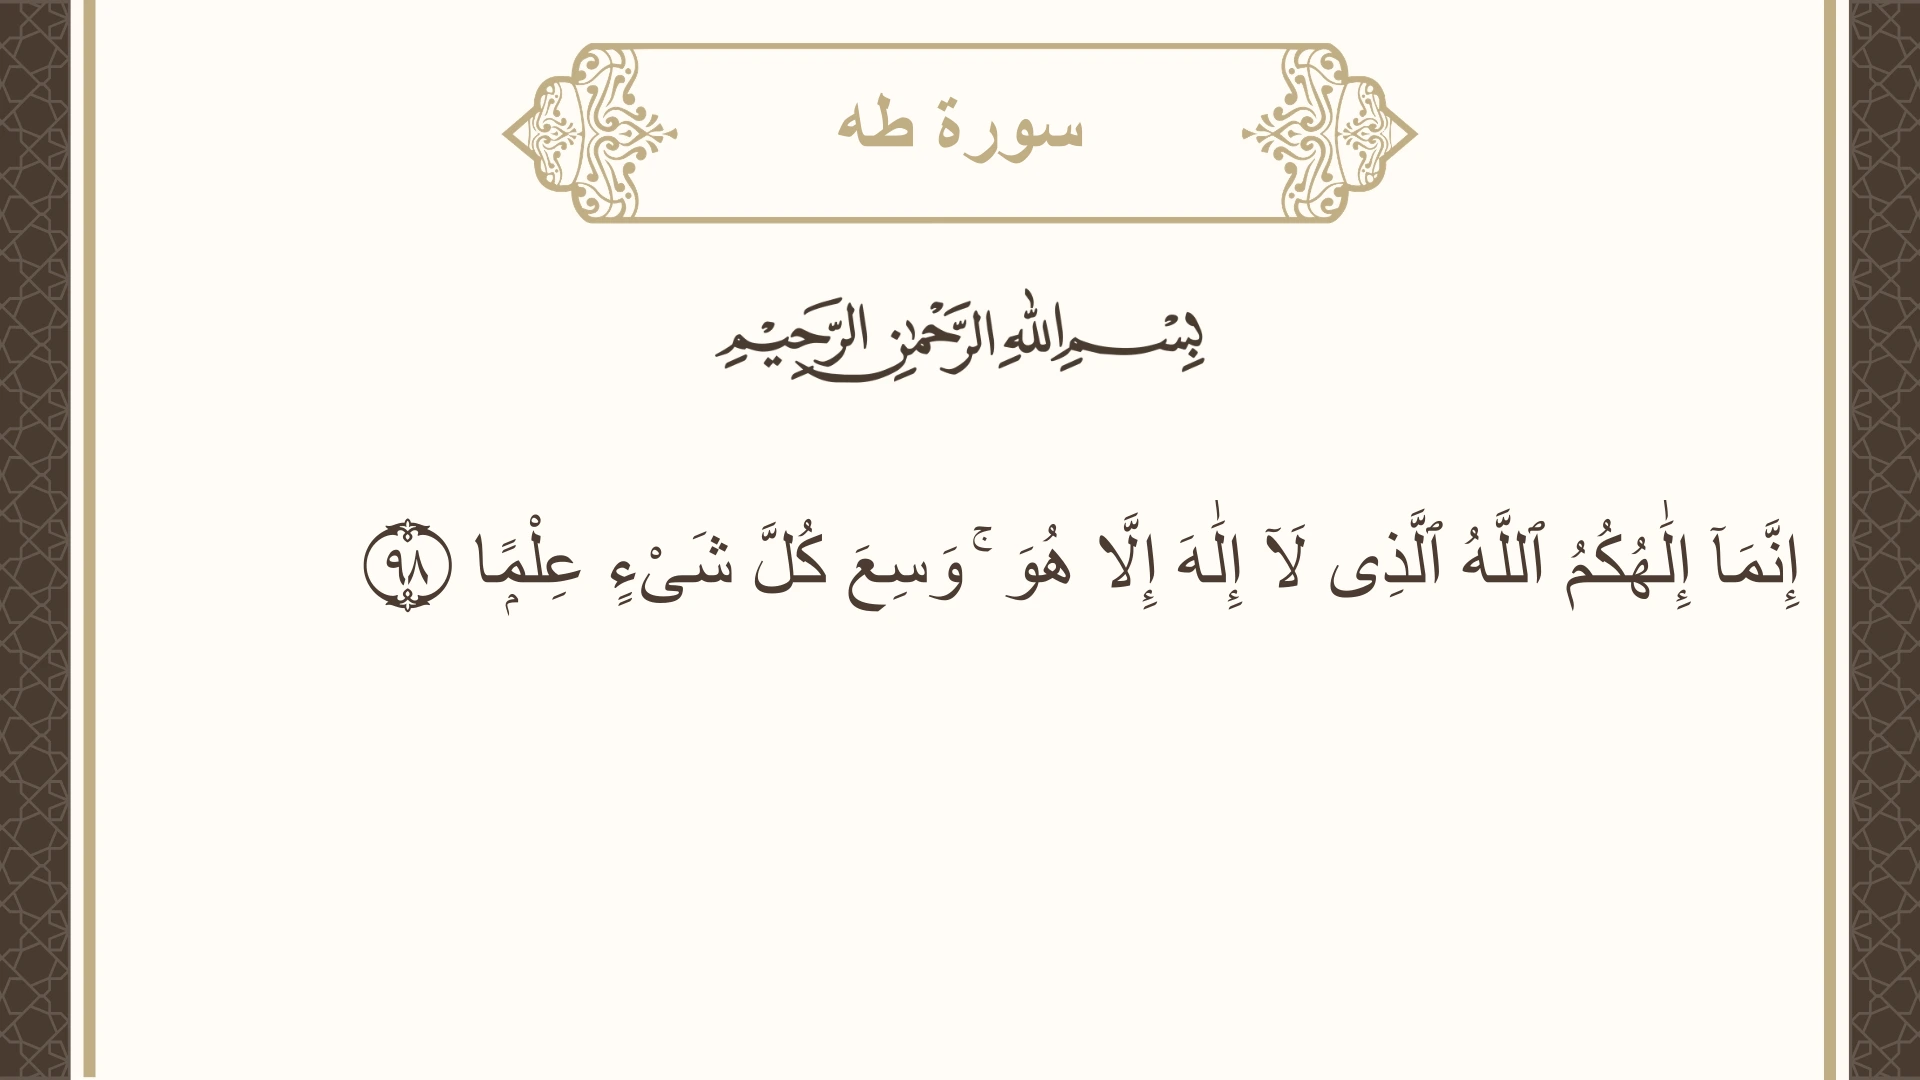 سورة طه
بِسْمِ اللهِ الرَّحْمٰنِ الرَّحِيْمِ
إِنَّمَآ إِلَٰهُكُمُ ٱللَّهُ ٱلَّذِى لَآ إِلَٰهَ إِلَّا هُوَ ۚ وَسِعَ كُلَّ شَىْءٍ عِلْمًۭا ٩٨